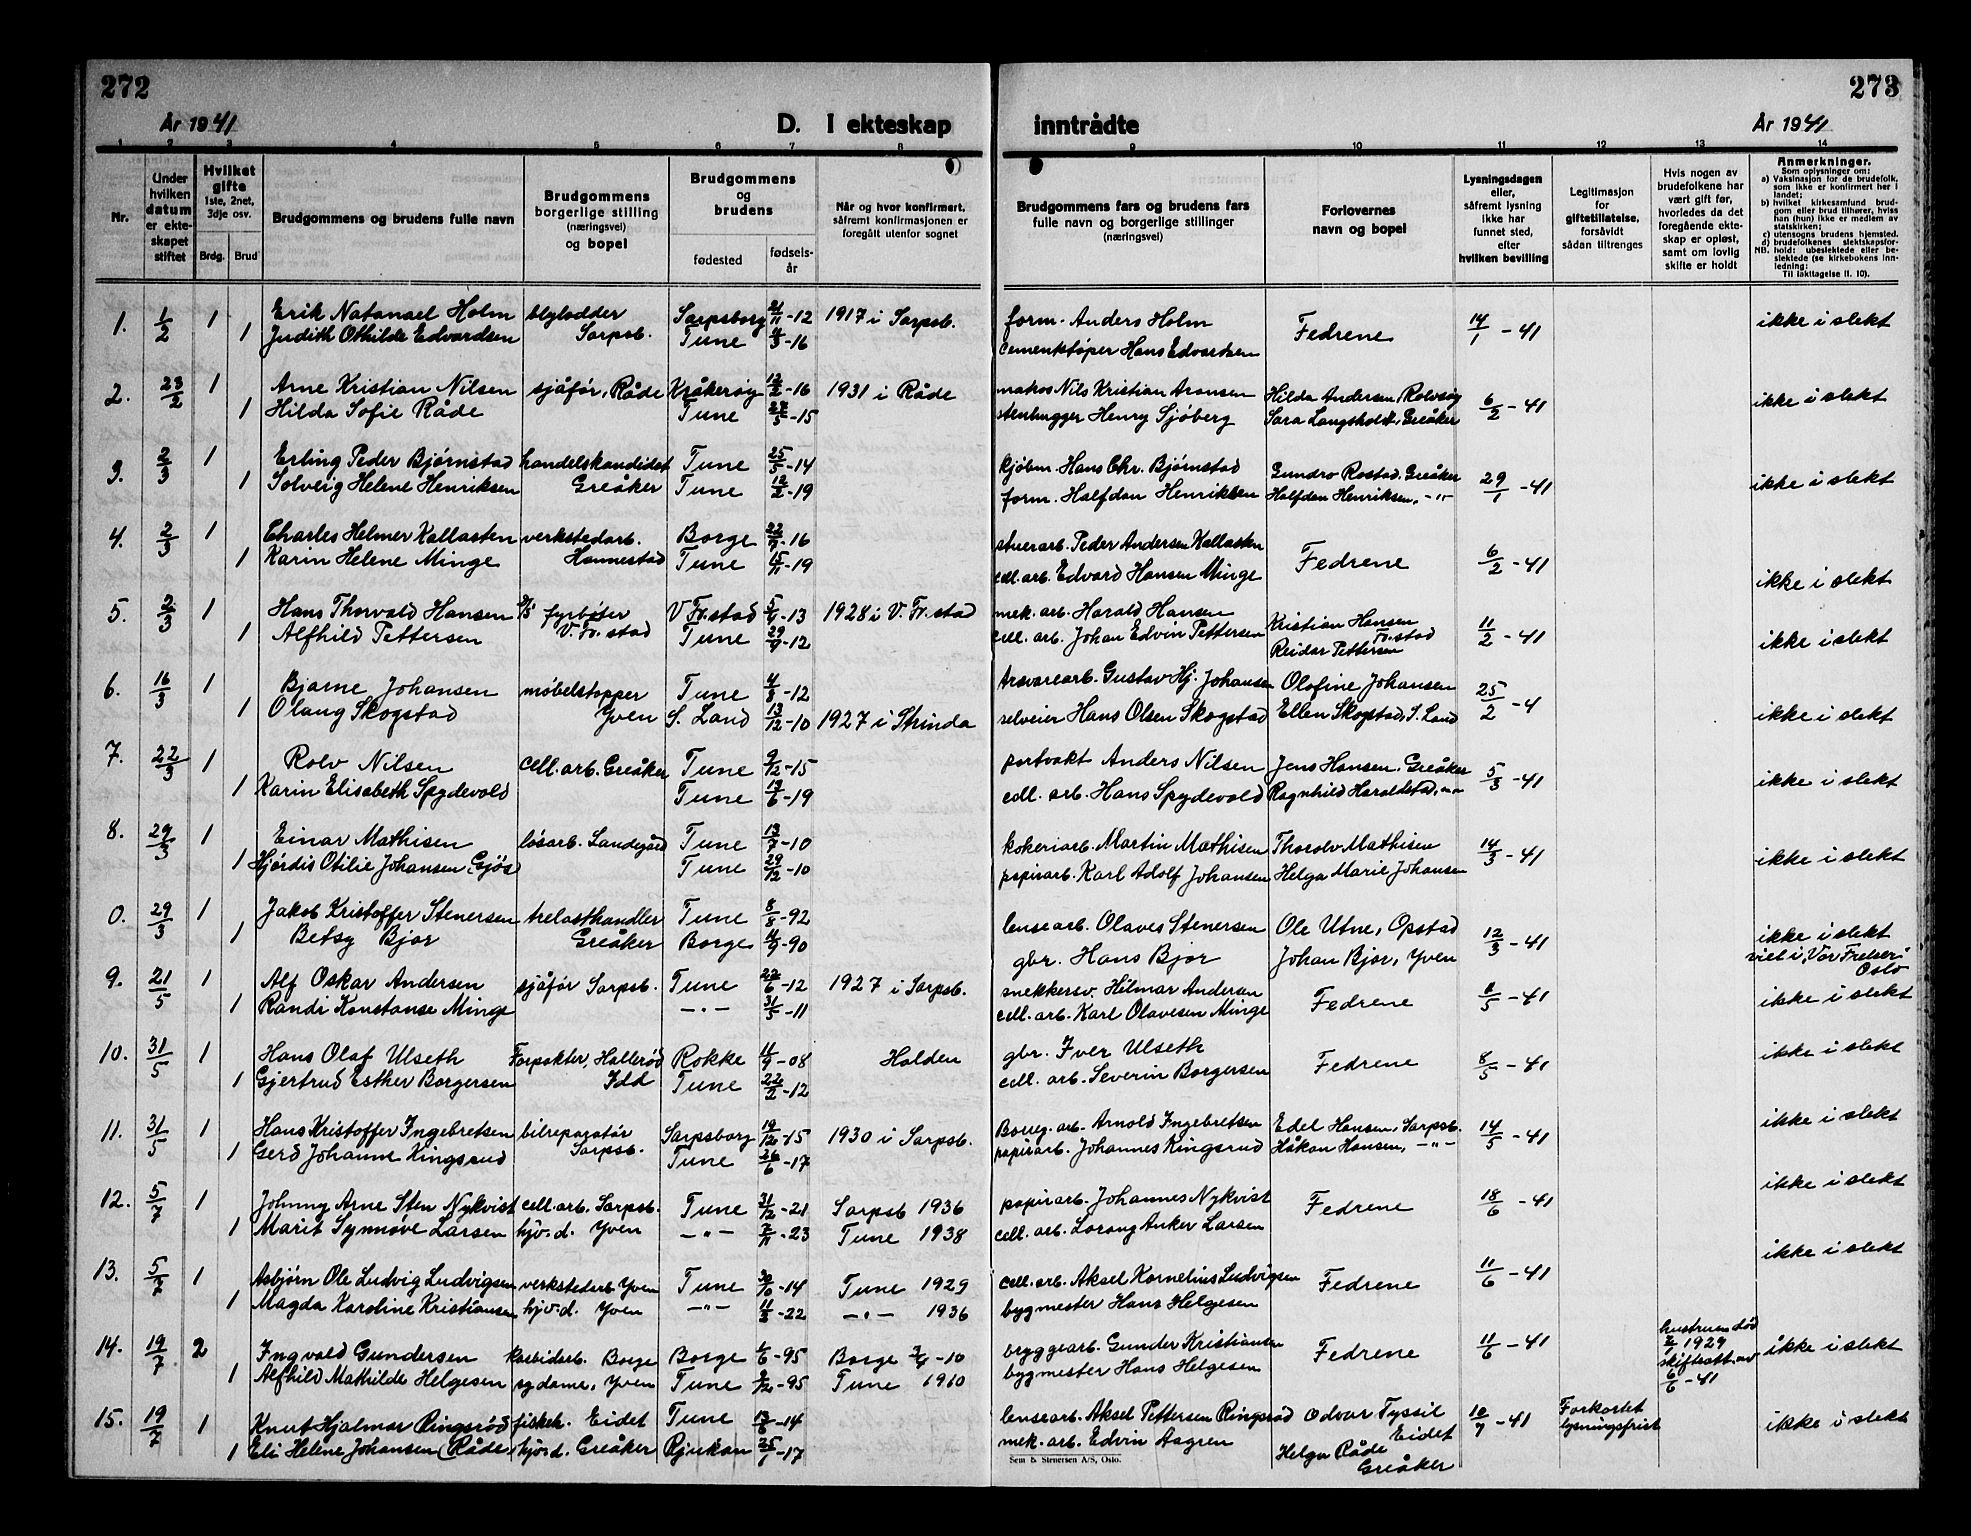 272
År 1941
D. I ekteskap
1 2 3 4 5 6 7 8
Nr.
Under hvilken datum er ekteskapet stiftet
Hvilket gifte 1ste, 2net, 3dje osv.
Brdg. Brud
Brudgommens og brudens fulle navn
Brudgommens borgerlige stilling (næringsvei) og bopel
Brudgommens og brudens
fødested fødselsår
Når og hvor konfirmert, såfremt konfirmasjonen er foregått utenfor sognet
1. 1/2 1 Erik Natanael Holm blylodder Sarpsborg 21/11-12 1917 i Sarpsb.
1 Judith Othilde Edvardsen Sarpsb. Tune 4/3-16
2. 23/2 1 Arne Kristian Nilsen sjåfør, Råde Kråkerøy 12/2-16 1931 i Råde
1 Hilda Sofie Råde Tune 22/5-15
3. 2/3 1 Erling Peder Bjørnstad handelskandidat Tune 25/5-14
1 Solveig Helene Henriksen Greåker Tune 12/2-19
4. 2/3 1 Charles Helmer Kallasten verkstedarb. Borge 22/7-16
1 Karin Helene Minge Hannestad Tune 15/11-19
5. 2/3 1 Hans Thorvald Hansen fyrbøter V. Fr.stad 5/4-13 1928 i V. Fr. stad
1 Alfhild Pettersen V. Fr. stad Tune 29/9-12
6. 16/3 1 Bjarne Johansen møbelstopper Tune 4/8-12
1 Olaug Skogstad Yven S. Land 13/12-10 1927 i Strinda
7. 22/3 1 Rolv Nilsen cell. arb. Greåker Tune 9/12-15
1 Karin Elisabeth Spydevold Tune 13/6-19
8. 29/3 1 Einar Mathisen løsarb. Sandegård Tune 13/7-10
1 Hjørdis Otilie Johansen (Gjøs) Tune 29/12-10
0. 29/3 1 Jakob Kristoffer Stenersen trelasthandler Tune 8/8-92
1 Betsy Bjor Greåker Borge 11/9-90
9. 21/5 1 Alf Oskar Andersen sjåfør Sarpsb. Tune 22/6-12 1927 i Sarpsb.
1 Randi Konstanse Minge -"- 31/5-11
10. 31/5 1 Hans Olaf Ulseth Forpakter, Hallerød Rokke 11/9-08 Halden
1 Gjertrud Esther Borgersen Idd Tune 22/2-12
11. 31/5 1 Hans Kristoffer Ingebretsen bilreparatør Sarpsborg 19/12-15 1930 i Sarpsb.
1 Gerd Johanne Kingsrud Sarpsb. Tune 26/6-17
12. 5/7 1 Johnny Arne Sten Nykvist cell. arb. Sarpsb. Tune 31/12-21 Sarpsb 1936
1 Marit Synnøve Larsen hjv.d. Yven -"- 7/11-23 Tune 1938
13. 5/7 1 Asbjørn Ole Ludvig Ludvigsen verkstedarb Yven Tune 30/6-14 Tune 1929
1 Magda Karoline Kristiansen hjv.d. Yven -"- 11/2-22 -"- 1936
14. 19/7 2 Ingvald Gundersen karbidarb. Borge Borge 6/6-95 Borge 3/4-10
1 Alfhild Mathilde Helgesen sydame, Yven Tune 2/12-95 Tune 1910
15. 19/7 1 Knut Hjalmar Ringsrød fisker. Eidet Tune 13/6-14
1 Eli Helene Johansen (Råde) hjv.d. Greåker Rjukan 25/1-17
273
inntrådte
År 1941
9 10 11 12 13 14
Brudgommens fars og brudens fars fulle navn og borgerlige stillinger (næringsvei)
Forlovernes navn og bopel
Lysningsdagen eller, såfremt lysning ikke har funnet sted, efter hvilken bevilling
Legitimasjon for giftetillatelse, forsåvidt sådan tiltrenges
Hvis nogen av brudefolkene har vært gift før, hvorledes da det foregående ekteskap er opløst, samt om lovlig skifte er holdt
Anmerkninger.
Som oplysninger om:
a) Vaksinasjon for de brudefolk, som ikke er konfirmert her i landet;
b) hvilket kirkesamfund brudgom eller brud tilhører, hviss han (hun) ikke er medlem av statskirken;
c) utensogns brudens hjemsted.
d) brudefolkenes slektskapsforhold: ubeslektede eller beslektede (se kirkebokens innledning:
NB.
Til iakttagelse II. 10).
form. Anders Holm
cementstøper Hans Edvardsen Fedrene 14/1-41 ikke i slekt
matros Nils Kristian Aronsen Hilda Andersen, Rolvsøy
stenhugger Henry Sjøberg Sara Langsholt, Greåker 6/2-41 ikke i slekt
kjøbm. Hans Chr. Bjørnstad Gundro Rostad, Greåker
form. Halfdan Henriksen Halfdan Henriksen, -"- 29/1-41 ikke i slekt
stuerarb. Peder Andersen Kallasten
cell. arb. Edvard Hansen Minge Fedrene 6/2-41 ikke i slekt
mek. arb. Harald Hansen Kristian Hansen
cell. arb. Johan Edvin Pettersen Fr. stad 11/2-41 ikke i slekt
Reidar Pettersen
Gustav Hj. Johansen Olofine Johansen
selveier Hans Olsen Skogstad Ellen Skogstad, S. Land 25/2-4 ikke i slekt
portvakt Anders Nilsen Jens Hansen, Greåker
cell. arb. Hans Spydevold Ragnhild Haraldstad, -"- 5/3-41 ikke i slekt
kokeriarb. Martin Mathisen Thorolv Mathisen
papirarb. Karl Adolf Johansen Helga Marie Johansen 14/3-41 ikke i slekt
lensearb. Olaves Stenersen Ole Utne, Opstad
gbr. Hans Bjor Johan Bjor, Yven 12/3-41 ikke i slekt
viet i "Vår Frelser" Oslo
snekkersv. Hilmar Andersen
cell. arb. Karl Olavesen Minge Fedrene 8/5-41 ikke i slekt
gbr. Iver Ulseth
cell. arb. Severin Borgersen Fedrene 8/5-41 ikke i slekt
Boreg. arb. Arnold Ingebretsen Edel Hansen, Sarpsb.
papirarb. Johannes Kingsrud Håkon Hansen, -"- 14/5-41 ikke i slekt
papirarb. Johannes Nykvist
cell. arb. Lorang Anker Larsen Fedrene 18/6-41 ikke i slekt
cell. arb. Aksel Kornelius Ludvigsen
bygmester Hans Helgesen Fedrene 11/6-41 ikke i slekt
bryggearb. Gunder Kristiansen
bygmester Hans Helgesen Fedrene 11/6-41 hustruen død 2/1 1929 skifteatt. av 6/6-41 ikke i slekt
lensearb. Aksel Pettersen Ringsrød Odvar Tyssil
mek. arb. Edvin Aagren Eidet 10/7-41 Forkortet lysningsfrist ikke i slekt
Helga Råde
Greåker
Sem & Stenersen A/S, Oslo.